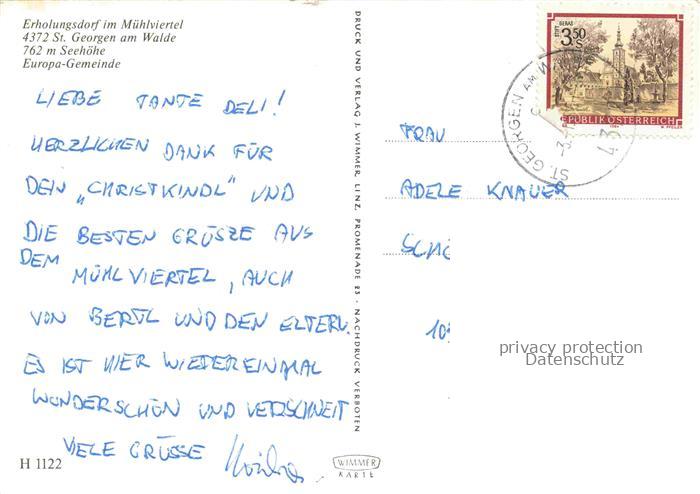 Erholungsdorf im Mühlviertel
4372 St. Georgen am Walde
762 m Seehöhe
Europa-Gemeinde
LIEBE TANTE DELI!
HERZLICHEN DANK FÜR
DEIN „CHRISTKINDL" UND
DIE BESTEN GRÜSZE AUS
DEM MÜHLVIERTEL, AUCH
VON BERTL UND DEN ELTERN.
ES IST HIER WIEDEREINMAL
WUNDERSCHÖN UND VERSCHNEIT
VIELE GRÜSSE
H 1122
DRUCK UND VERLAG J. WIMMER, LINZ, PROMENADE 23 · NACHDRUCK VERBOTEN
WIMMER
KARTE
STIFT GERAS
3.50
S
REPUBLIK ÖSTERREICH
ST. GEORGEN AM W
FRAU
ADELE KNAUER
privacy protection
Datenschutz